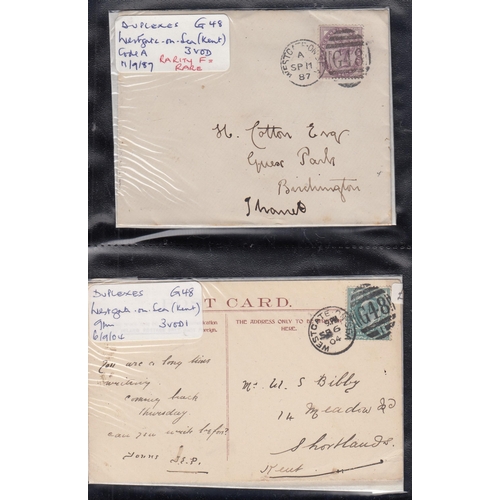 DUPLEXES G48
Westgate-on-Sea (Kent)
Code A 3VOD
11/9/87 RARITY F=
RARE
WESTGATE-ON-
A
SP 11
87
G48
H. Cotton Esq
Quex Park
Birchington
Thanet
DUPLEXES G48
Westgate-on-Sea (Kent)
9pm 3VOD1
6/9/04
T CARD.
THE ADDRESS ONLY TO
HERE.
WESTGATE-ON-
9PM
SP 6
04
G48
You are a long time
writing
coming back
Thursday
can you write before?
Yours J.S.P.
Mr W S Bibby
14 Meadow Rd
Shortlands
Kent